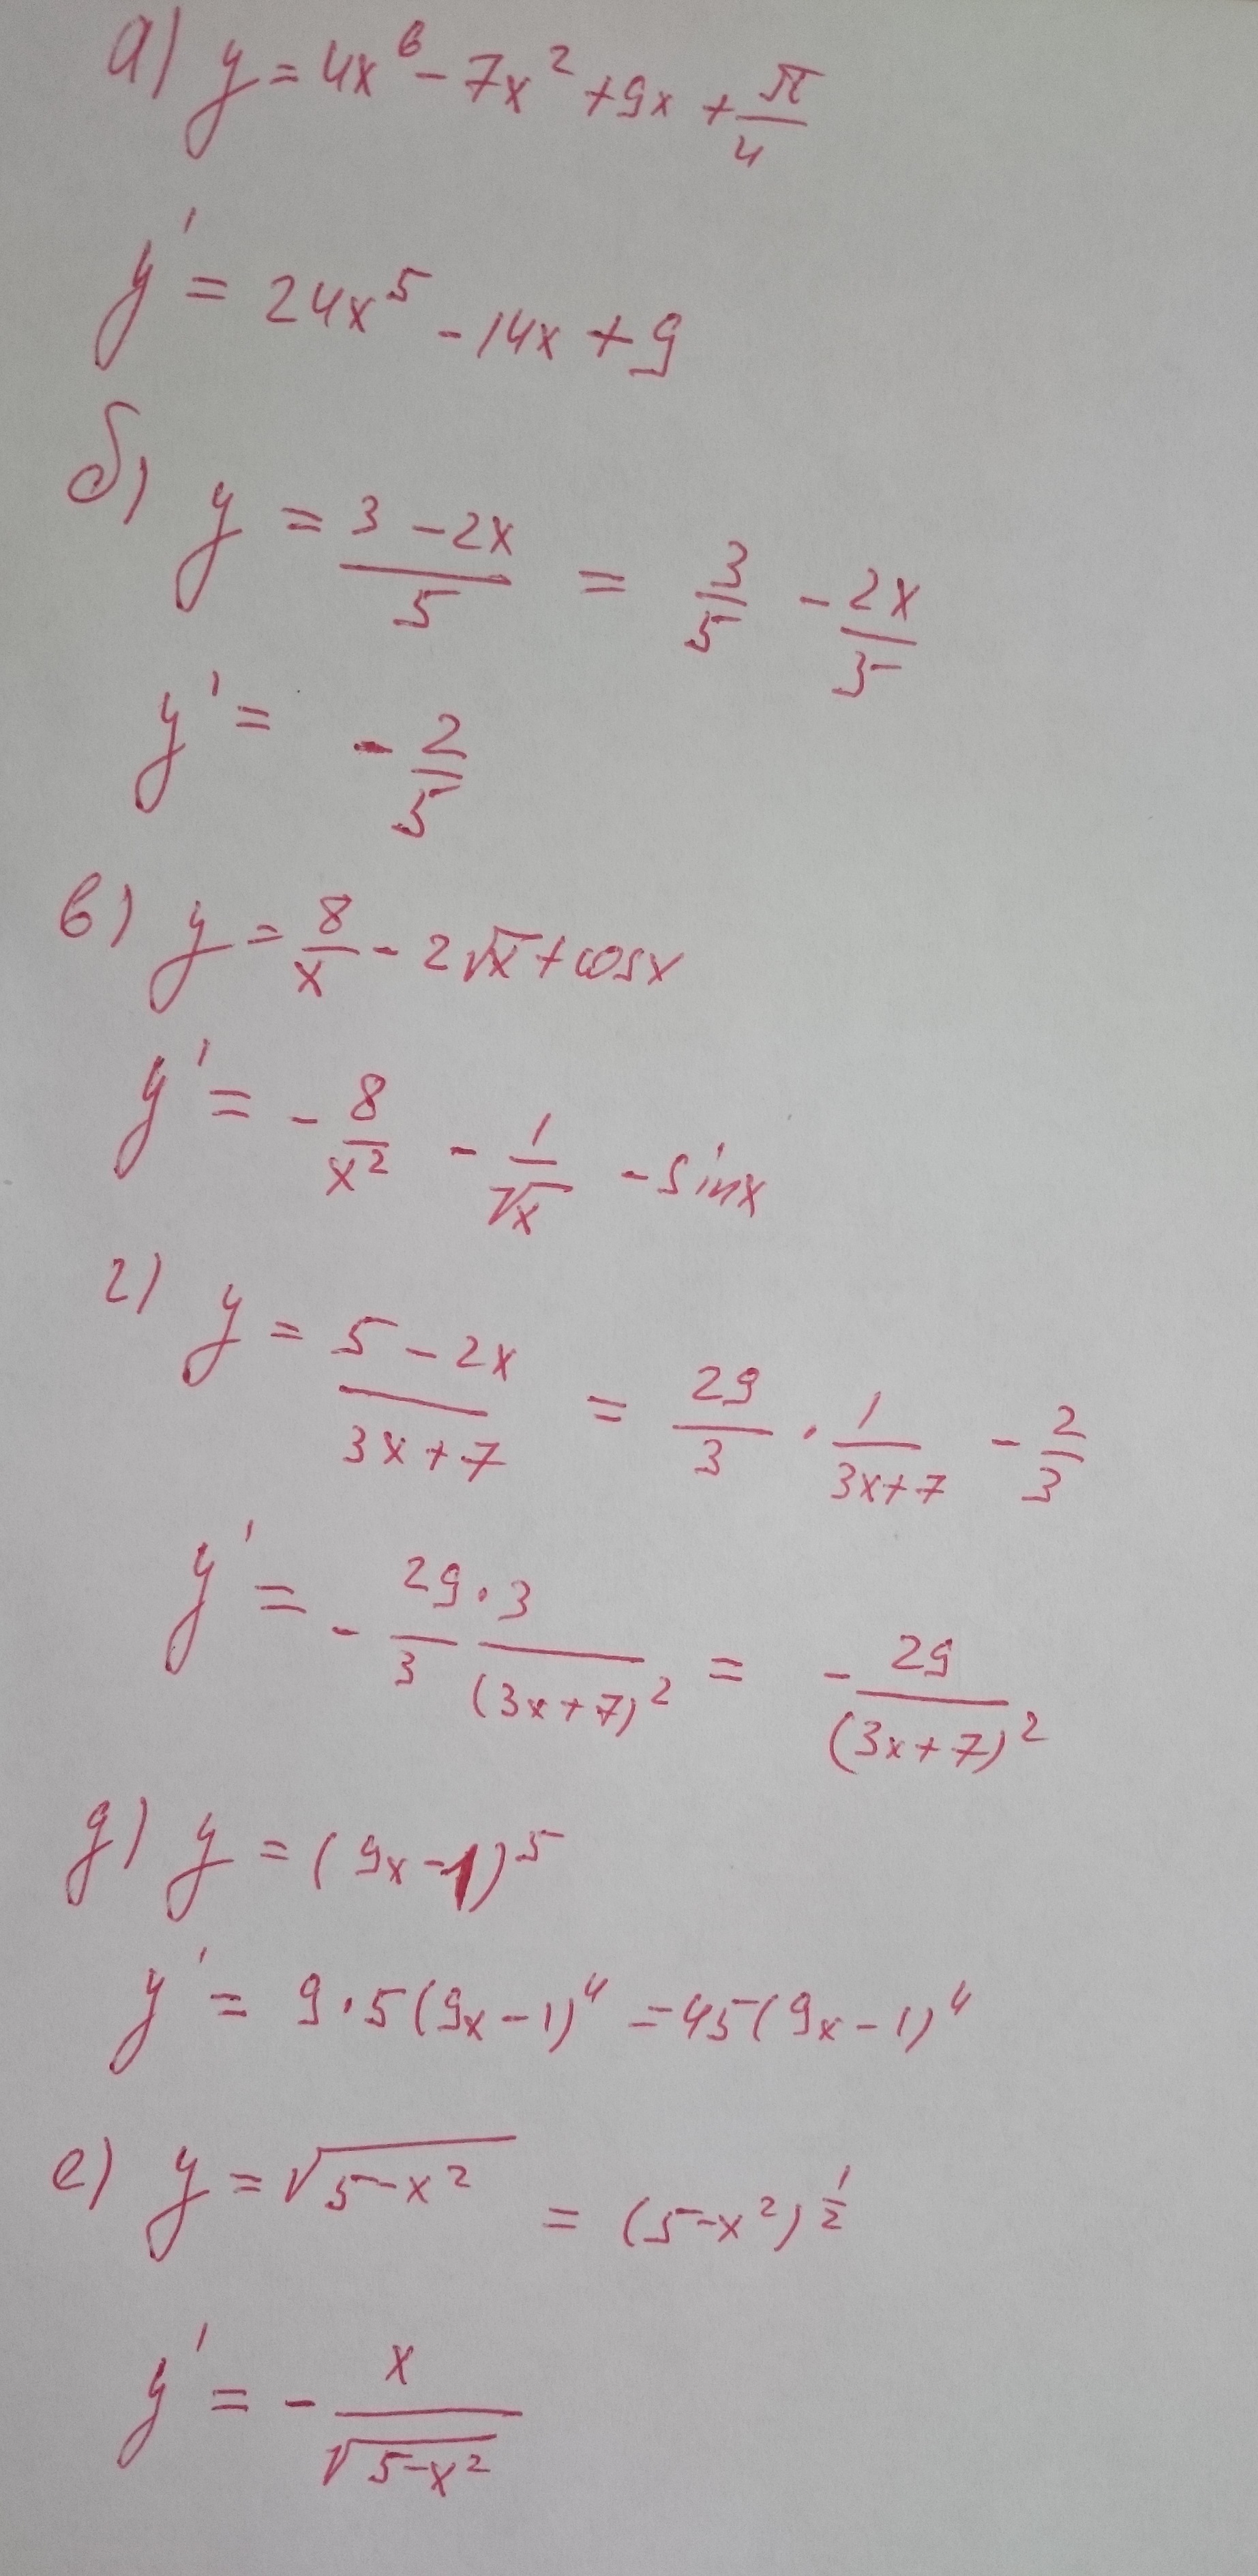 а) y = 4x⁶ - 7x² + 9x + π/4
y' = 24x⁵ - 14x + 9
б) y = (3 - 2x)/5 = 3/5 - 2x/5
y' = - 2/5
в) y = 8/x - 2√x + cosx
y' = - 8/x² - 1/√x - sinx
г) y = (5 - 2x)/(3x + 7) = 29/3 · 1/(3x + 7) - 2/3
y' = - 29/3 · 3/(3x + 7)² = - 29/(3x + 7)²
д) y = (9x - 1)⁵
y' = 9 · 5(9x - 1)⁴ = 45(9x - 1)⁴
е) y = √(5 - x²) = (5 - x²)^(1/2)
y' = - x/√(5 - x²)